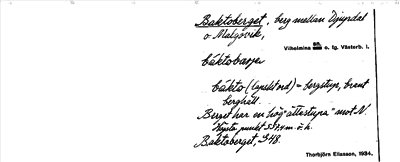 Baktoberget, berg mellan Djupdal
o Malgovik,
Vilhelmina sn o. tg. Västerb. l.
báktobarje
bákto (lapskt ord) = bergstup, brant
berghäll.
Berget har en hög "ättestupa" mot N.
Högsta punkt 537,4 m ö. h.
Baktoberget, J48.
Thorbjörn Eliasson, 1934.